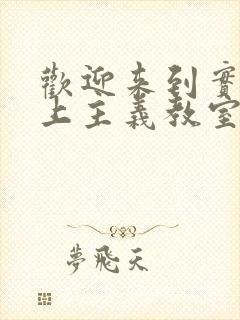 歡迎来到實
上主義教室
夢飛天